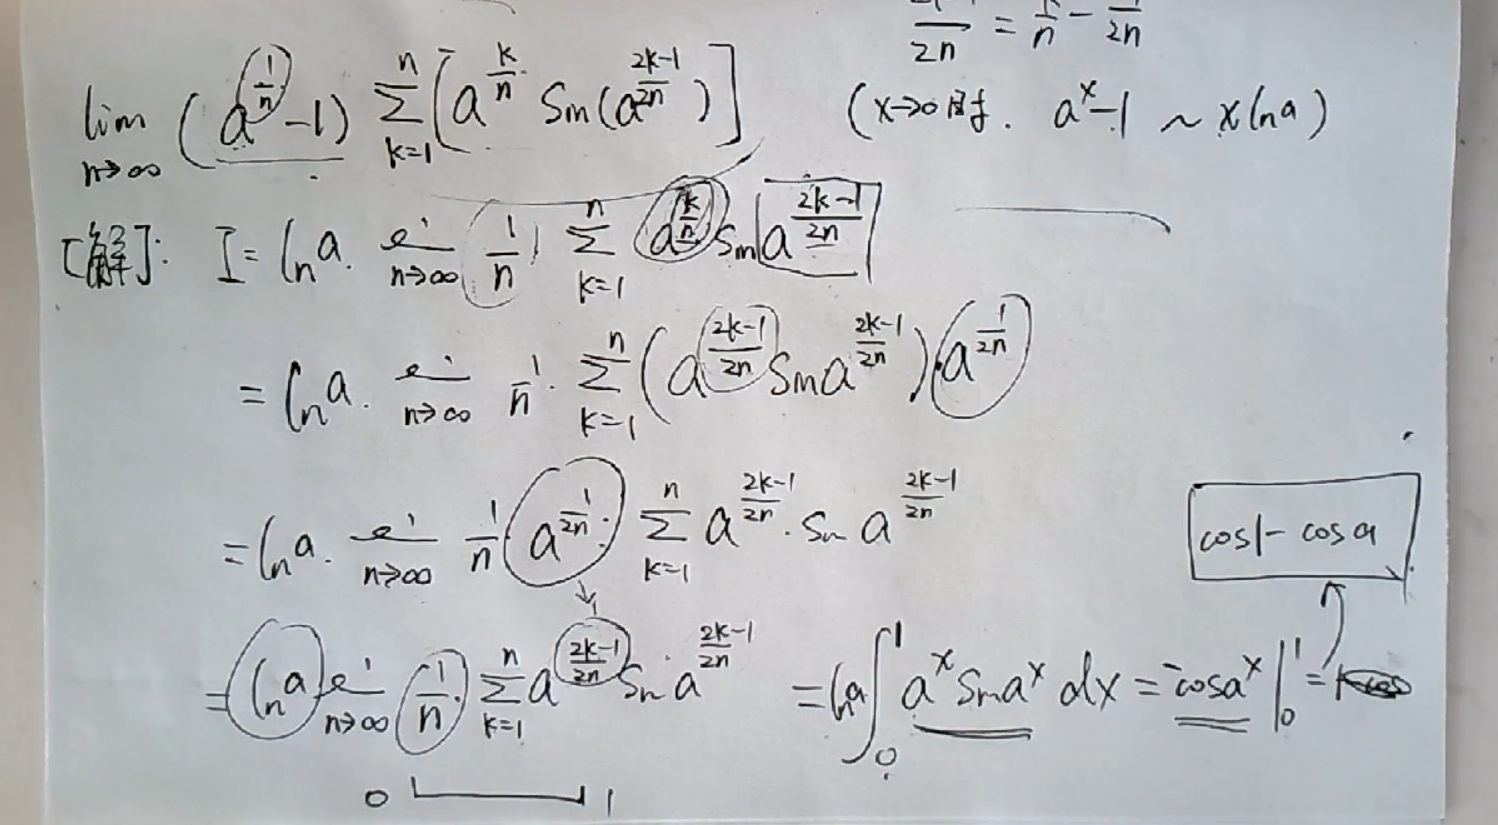 2n = 1/n - 1/2n
lim n→∞ (a^(1/n) - 1) ∑ k=1 n [a^(k/n) sin(a^((2k-1)/2n))] (x→0时. a^x - 1 ~ x ln a)
[解]: I = ln a · lim n→∞ 1/n ∑ k=1 n a^(k/n) sin a^((2k-1)/2n)
= ln a · lim n→∞ 1/n · ∑ k=1 n (a^((2k-1)/2n) sin a^((2k-1)/2n)) · a^(1/2n)
= ln a · lim n→∞ 1/n a^(1/2n) · ∑ k=1 n a^((2k-1)/2n) · sin a^((2k-1)/2n)
cos1 - cos a
1
= ln a lim n→∞ 1/n · ∑ k=1 n a^((2k-1)/2n) sin a^((2k-1)/2n) = ln a ∫ 0 1 a^x sin a^x dx = -cos a^x | 0 1 =
0 1